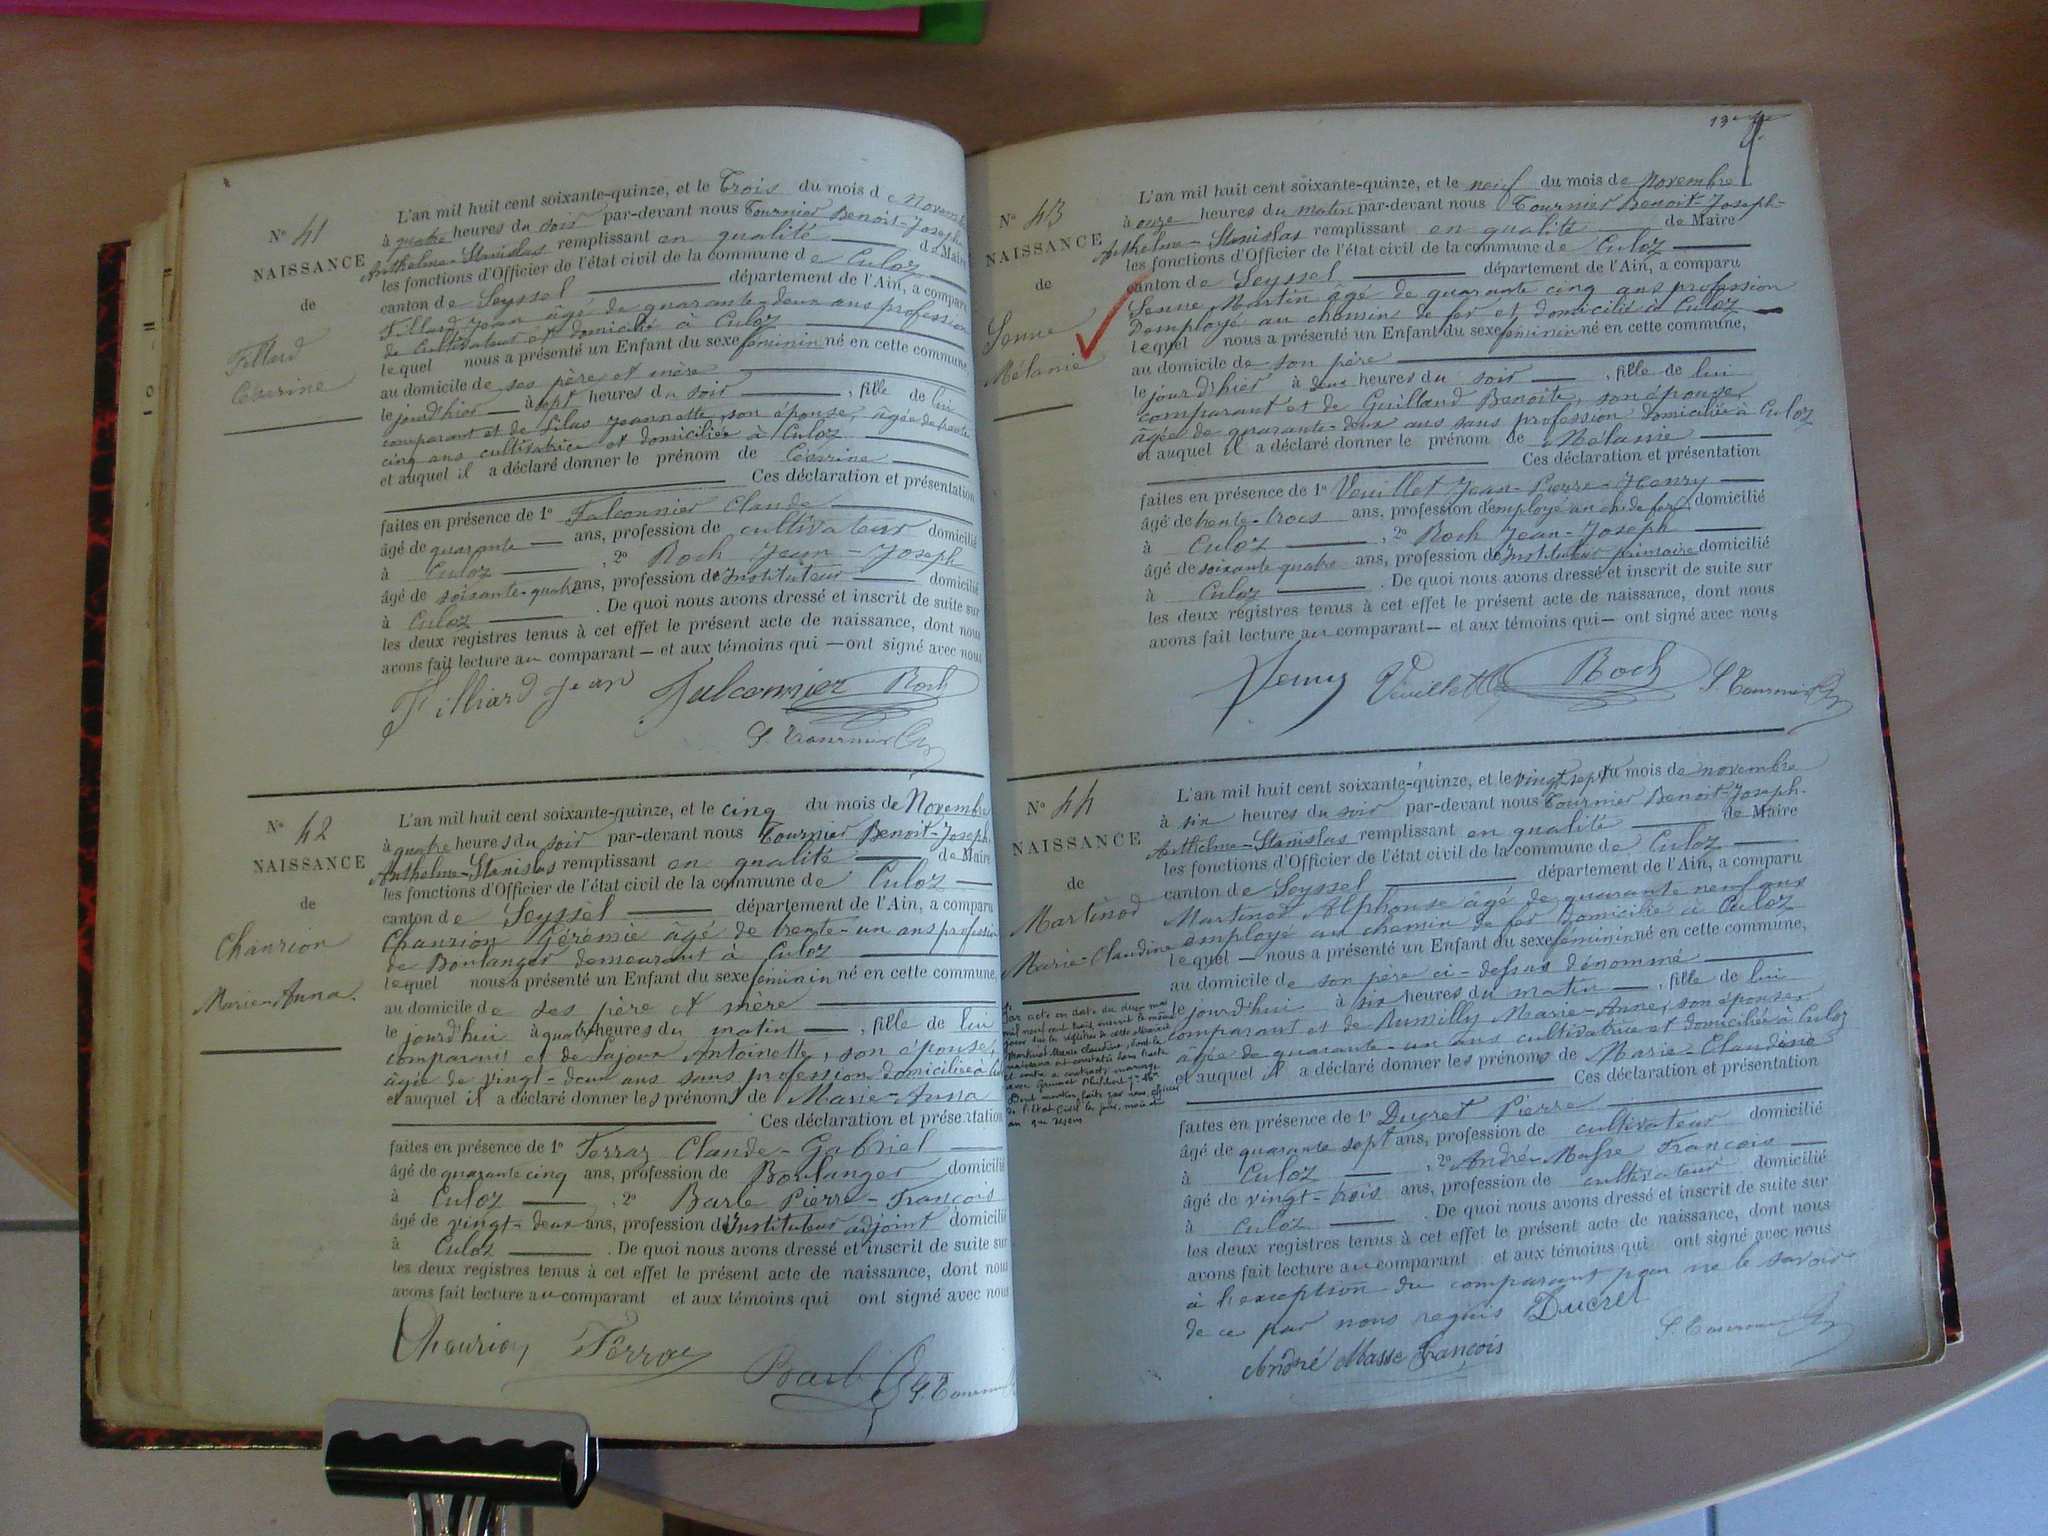 N° 41
NAISSANCE
de
Fillard
Césarine
L'an mil huit cent soixante-quinze, et le Trois du mois de Novembre
à quatre heures du soir par-devant nous Tournier Benoit-Joseph
Anthelme-Stanislas remplissant en qualité de Maire
les fonctions d'Officier de l'état civil de la commune de Culoz
canton de Seyssel département de l'Ain, a comparu
Fillard Jean âgé de quarante-deux ans profession
de Cultivateur et domicilié à Culoz
lequel nous a présenté un Enfant du sexe féminin né en cette commune,
au domicile de ses père et mère
le jourd'hier à sept heures du soir, fille de lui
comparant et de Silas Jeannette, son épouse, âgée de trente
cinq ans cultivatrice et domiciliée à Culoz
et auquel il a déclaré donner le prénom de Césarine
Ces déclaration et présentation
faites en présence de 1° Falconnier Claude
âgé de quarante ans, profession de cultivateur domicilié
à Culoz, 2° Roch Jean-Joseph
âgé de soixante-quatre ans, profession d'Instituteur domicilié
à Culoz. De quoi nous avons dressé et inscrit de suite sur
les deux registres tenus à cet effet le présent acte de naissance, dont nous
avons fait lecture au comparant — et aux témoins qui — ont signé avec nous
Filliard Jean Falconnier Roch
S Tournier
N° 42
NAISSANCE
de
Chanrion
Marie-Anna.
L'an mil huit cent soixante-quinze, et le cinq du mois de Novembre
à quatre heures du soir par-devant nous Tournier Benoit-Joseph
Anthelme-Stanislas remplissant en qualité de Maire
les fonctions d'Officier de l'état civil de la commune de Culoz
canton de Seyssel département de l'Ain, a comparu
Chanrion Gérémie âgé de trente-un ans profession
de Boulanger demeurant à Culoz
lequel nous a présenté un Enfant du sexe féminin né en cette commune,
au domicile de ses père et mère
le jourd'hui à quatre heures du matin, fille de lui
comparant et de Lajoux Antoinette, son épouse,
âgée de vingt-deux ans sans profession domiciliée à Culoz
et auquel il a déclaré donner les prénoms de Marie-Anna
Ces déclaration et présentation
faites en présence de 1° Ferraz Claude-Gabriel
âgé de quarante cinq ans, profession de Boulanger domicilié
à Culoz, 2° Barle Pierre-François
âgé de vingt-deux ans, profession d'Instituteur adjoint domicilié
à Culoz. De quoi nous avons dressé et inscrit de suite sur
les deux registres tenus à cet effet le présent acte de naissance, dont nous
avons fait lecture au comparant et aux témoins qui ont signé avec nous
Chanrion Ferraz
S. Tournier
13
N° 43
NAISSANCE
de
Senne
Mélanie
L'an mil huit cent soixante-quinze, et le neuf du mois de novembre
à onze heures du matin par-devant nous Tournier Benoit-Joseph-
Anthelme-Stanislas remplissant en qualité de Maire
les fonctions d'Officier de l'état civil de la commune de Culoz
canton de Seyssel département de l'Ain, a comparu
Senne Martin âgé de quarante cinq ans profession
D'employé au chemin de fer et domicilié à Culoz
lequel nous a présenté un Enfant du sexe féminin né en cette commune,
au domicile de son père
le jour d'hier à deux heures du soir, fille de lui
comparant et de Guilland Benoite, son épouse,
âgée de quarante-deux ans sans profession domiciliée à Culoz
et auquel il a déclaré donner le prénom de Mélanie
Ces déclaration et présentation
faites en présence de 1° Veuillet Jean-Pierre-Henry
âgé de trente-trois ans, profession d'employé au ch. de fer domicilié
à Culoz, 2° Roch Jean-Joseph
âgé de soixante quatre ans, profession d'Instituteur primaire domicilié
à Culoz. De quoi nous avons dressé et inscrit de suite sur
les deux registres tenus à cet effet le présent acte de naissance, dont nous
avons fait lecture au comparant — et aux témoins qui — ont signé avec nous
Roch S Tournier
N° 44
NAISSANCE
de
Martinod
Marie-Claudine
L'an mil huit cent soixante-quinze, et le vingt sept du mois de novembre
à six heures du soir par-devant nous Tournier Benoit-Joseph-
Anthelme-Stanislas remplissant en qualité de Maire
les fonctions d'Officier de l'état civil de la commune de Culoz
canton de Seyssel département de l'Ain, a comparu
Martinod Alphonse âgé de quarante neuf ans
employé au chemin de fer domicilié à Culoz
lequel — nous a présenté un Enfant du sexe féminin né en cette commune,
au domicile de son père ci-dessus dénommé
le jourd'hui à six heures du matin, fille de lui
comparant et de Rumilly Marie-Anne, son épouse,
âgée de quarante-un ans cultivatrice et domiciliée à Culoz
et auquel il a déclaré donner les prénoms de Marie-Claudine
Ces déclaration et présentation
faites en présence de 1° Ducret Pierre
âgé de quarante sept ans, profession de cultivateur domicilié
à Culoz, 2° André-Masse François
âgé de vingt-trois ans, profession de cultivateur domicilié
à Culoz. De quoi nous avons dressé et inscrit de suite sur
les deux registres tenus à cet effet le présent acte de naissance, dont nous
avons fait lecture au comparant et aux témoins qui ont signé avec nous
à l'exception du comparant pour ne le savoir
de ce par nous requis Ducret
André Masse François S. Tournier
Par acte en date du deux mai
mil neuf cent huit
Dont mention faite par nous officier
de l'Etat Civil les jour, mois et
an que dessus